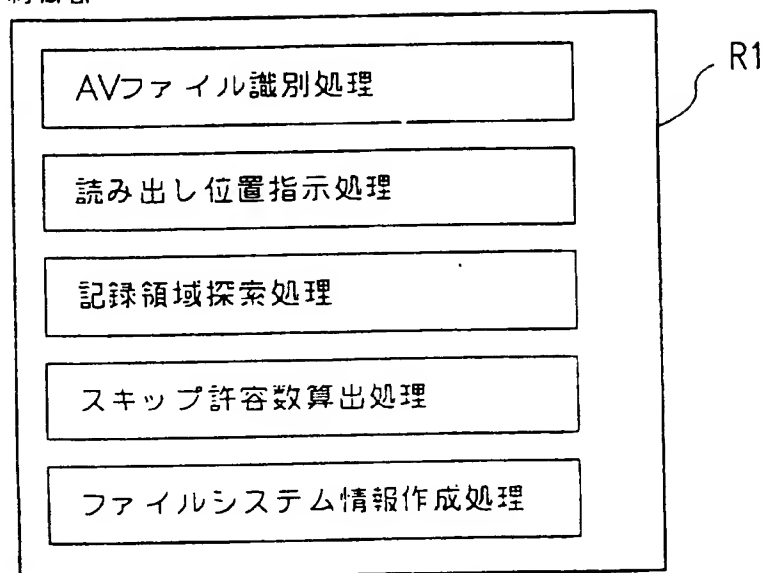 R1
AVファイル識別処理
読み出し位置指示処理
記録領域探索処理
スキップ許容数算出処理
ファイルシステム情報作成処理